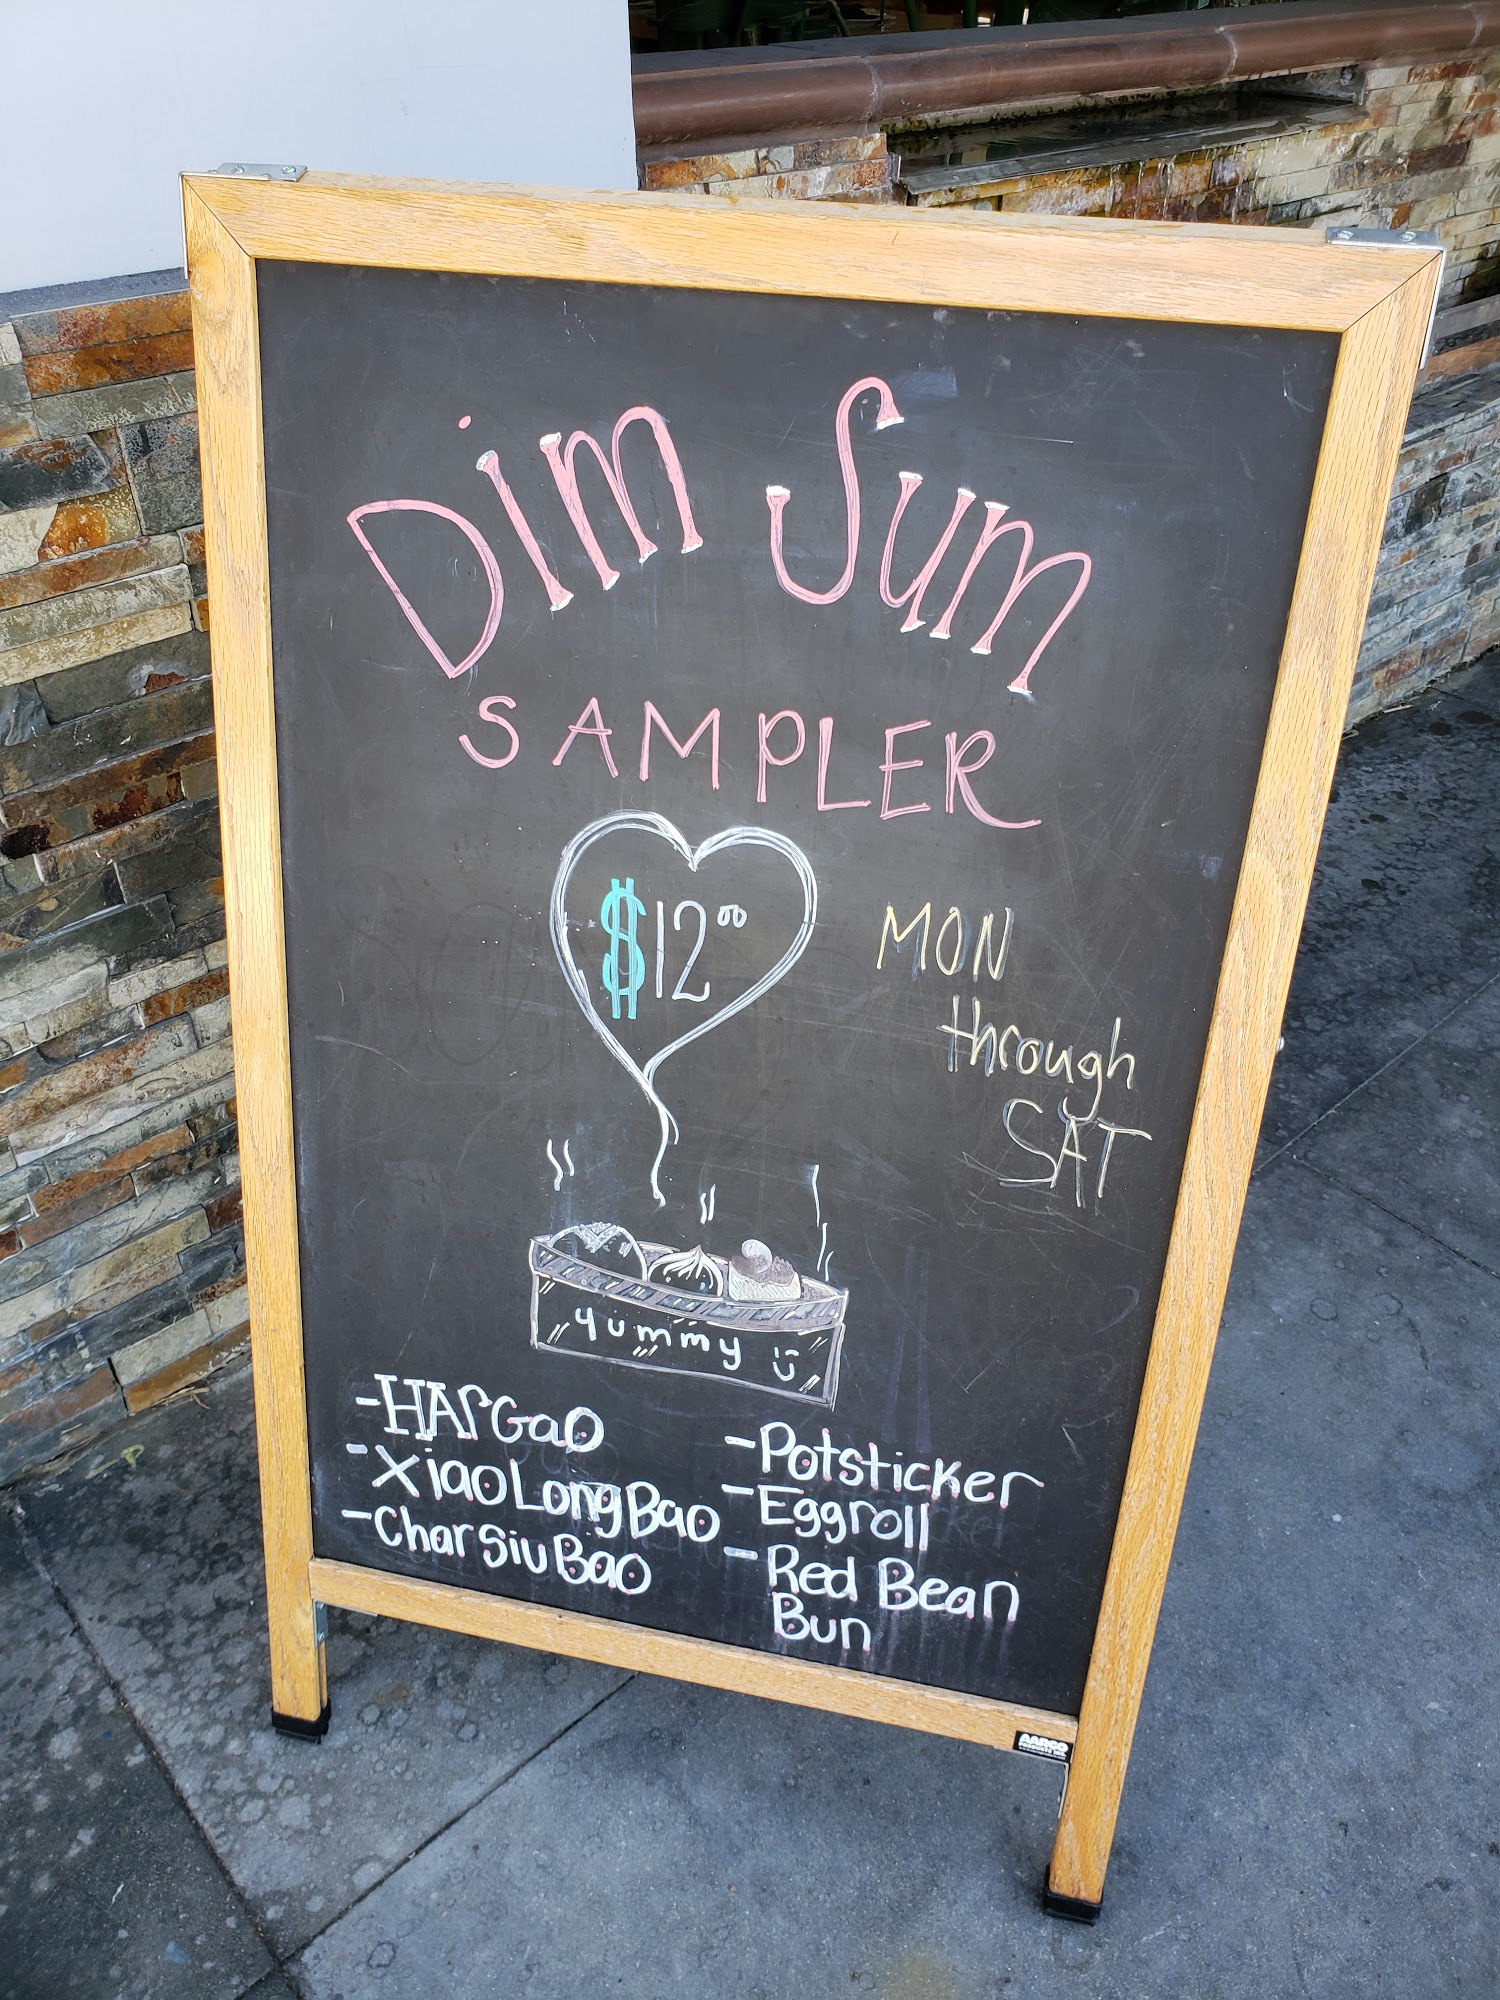 Dim Sum
SAMPLER
$12.00
MON
through
SAT
yummy
-HAr Gao
-Xiao Long Bao
-Char Siu Bao
-Potsticker
-Eggroll
-Red Bean
Bun
AARCO